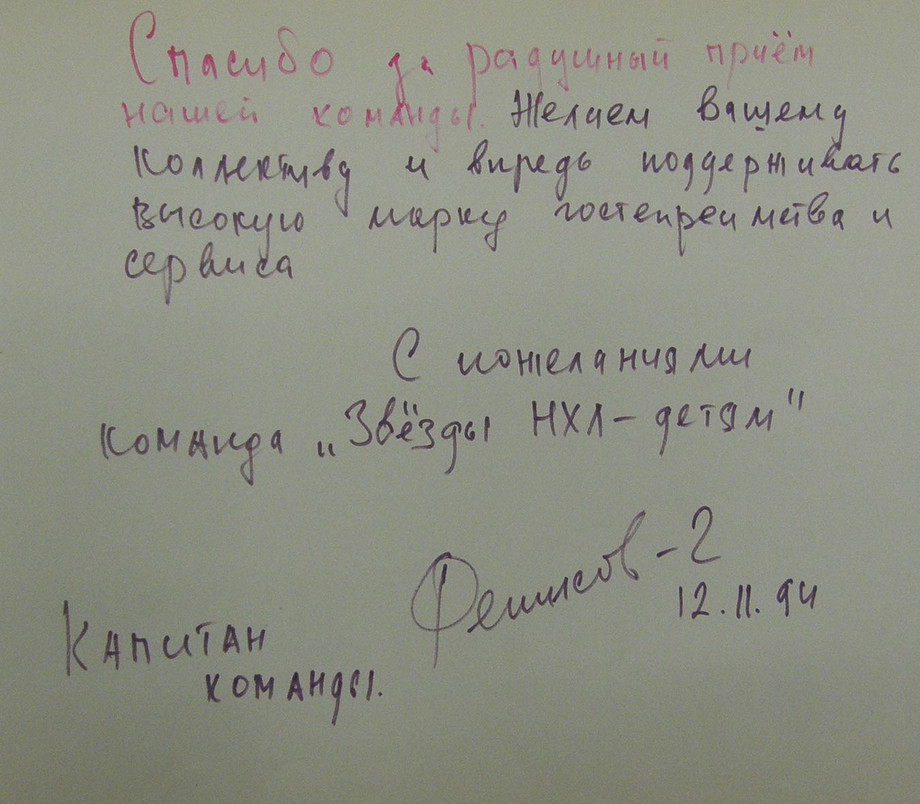 Спасибо за радушный приём
нашей команды. Желаем Вашему
коллективу и впредь поддерживать
высокую марку гостепреимства и
сервиса
С пожеланиями
команда „Звёзды НХЛ – детям"
Фетисов - 2
12.11.94
Капитан
команды.